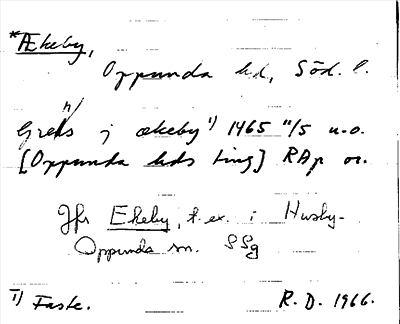 *Ækeby,
Oppunda hd, Söd. l.
Grels j ækeby 1) 1465 11/5 u.o.
[Oppunda hds ting] RAp or.
Jfr Ekeby, t.ex. i Husby-
Oppunda sn. SSg
1) Faste. R.D. 1966.